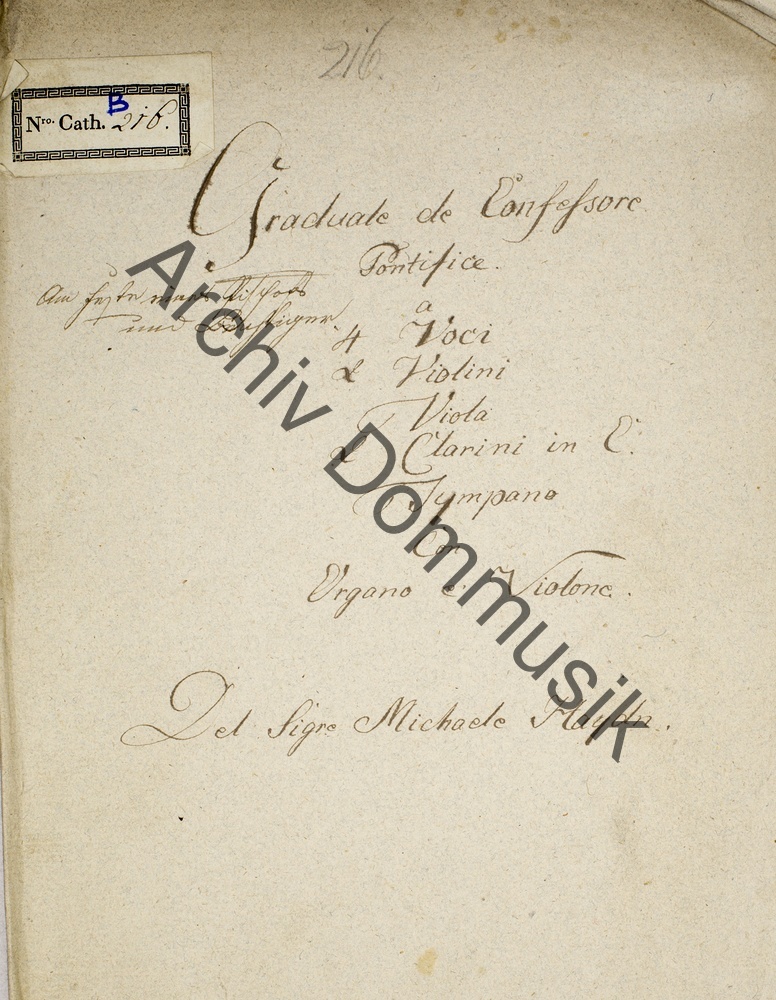 216.
B
Nro. Cath. 216.
Graduale de Confessore
Pontifice.
Am Feste eines Bischofs
und
a
4 Voci
2 Violini
Viola
2 Clarini in C.
Tympano
Con
Organo e Violone.
Del Sigre Michaele Haydn.
Archiv Dommusik